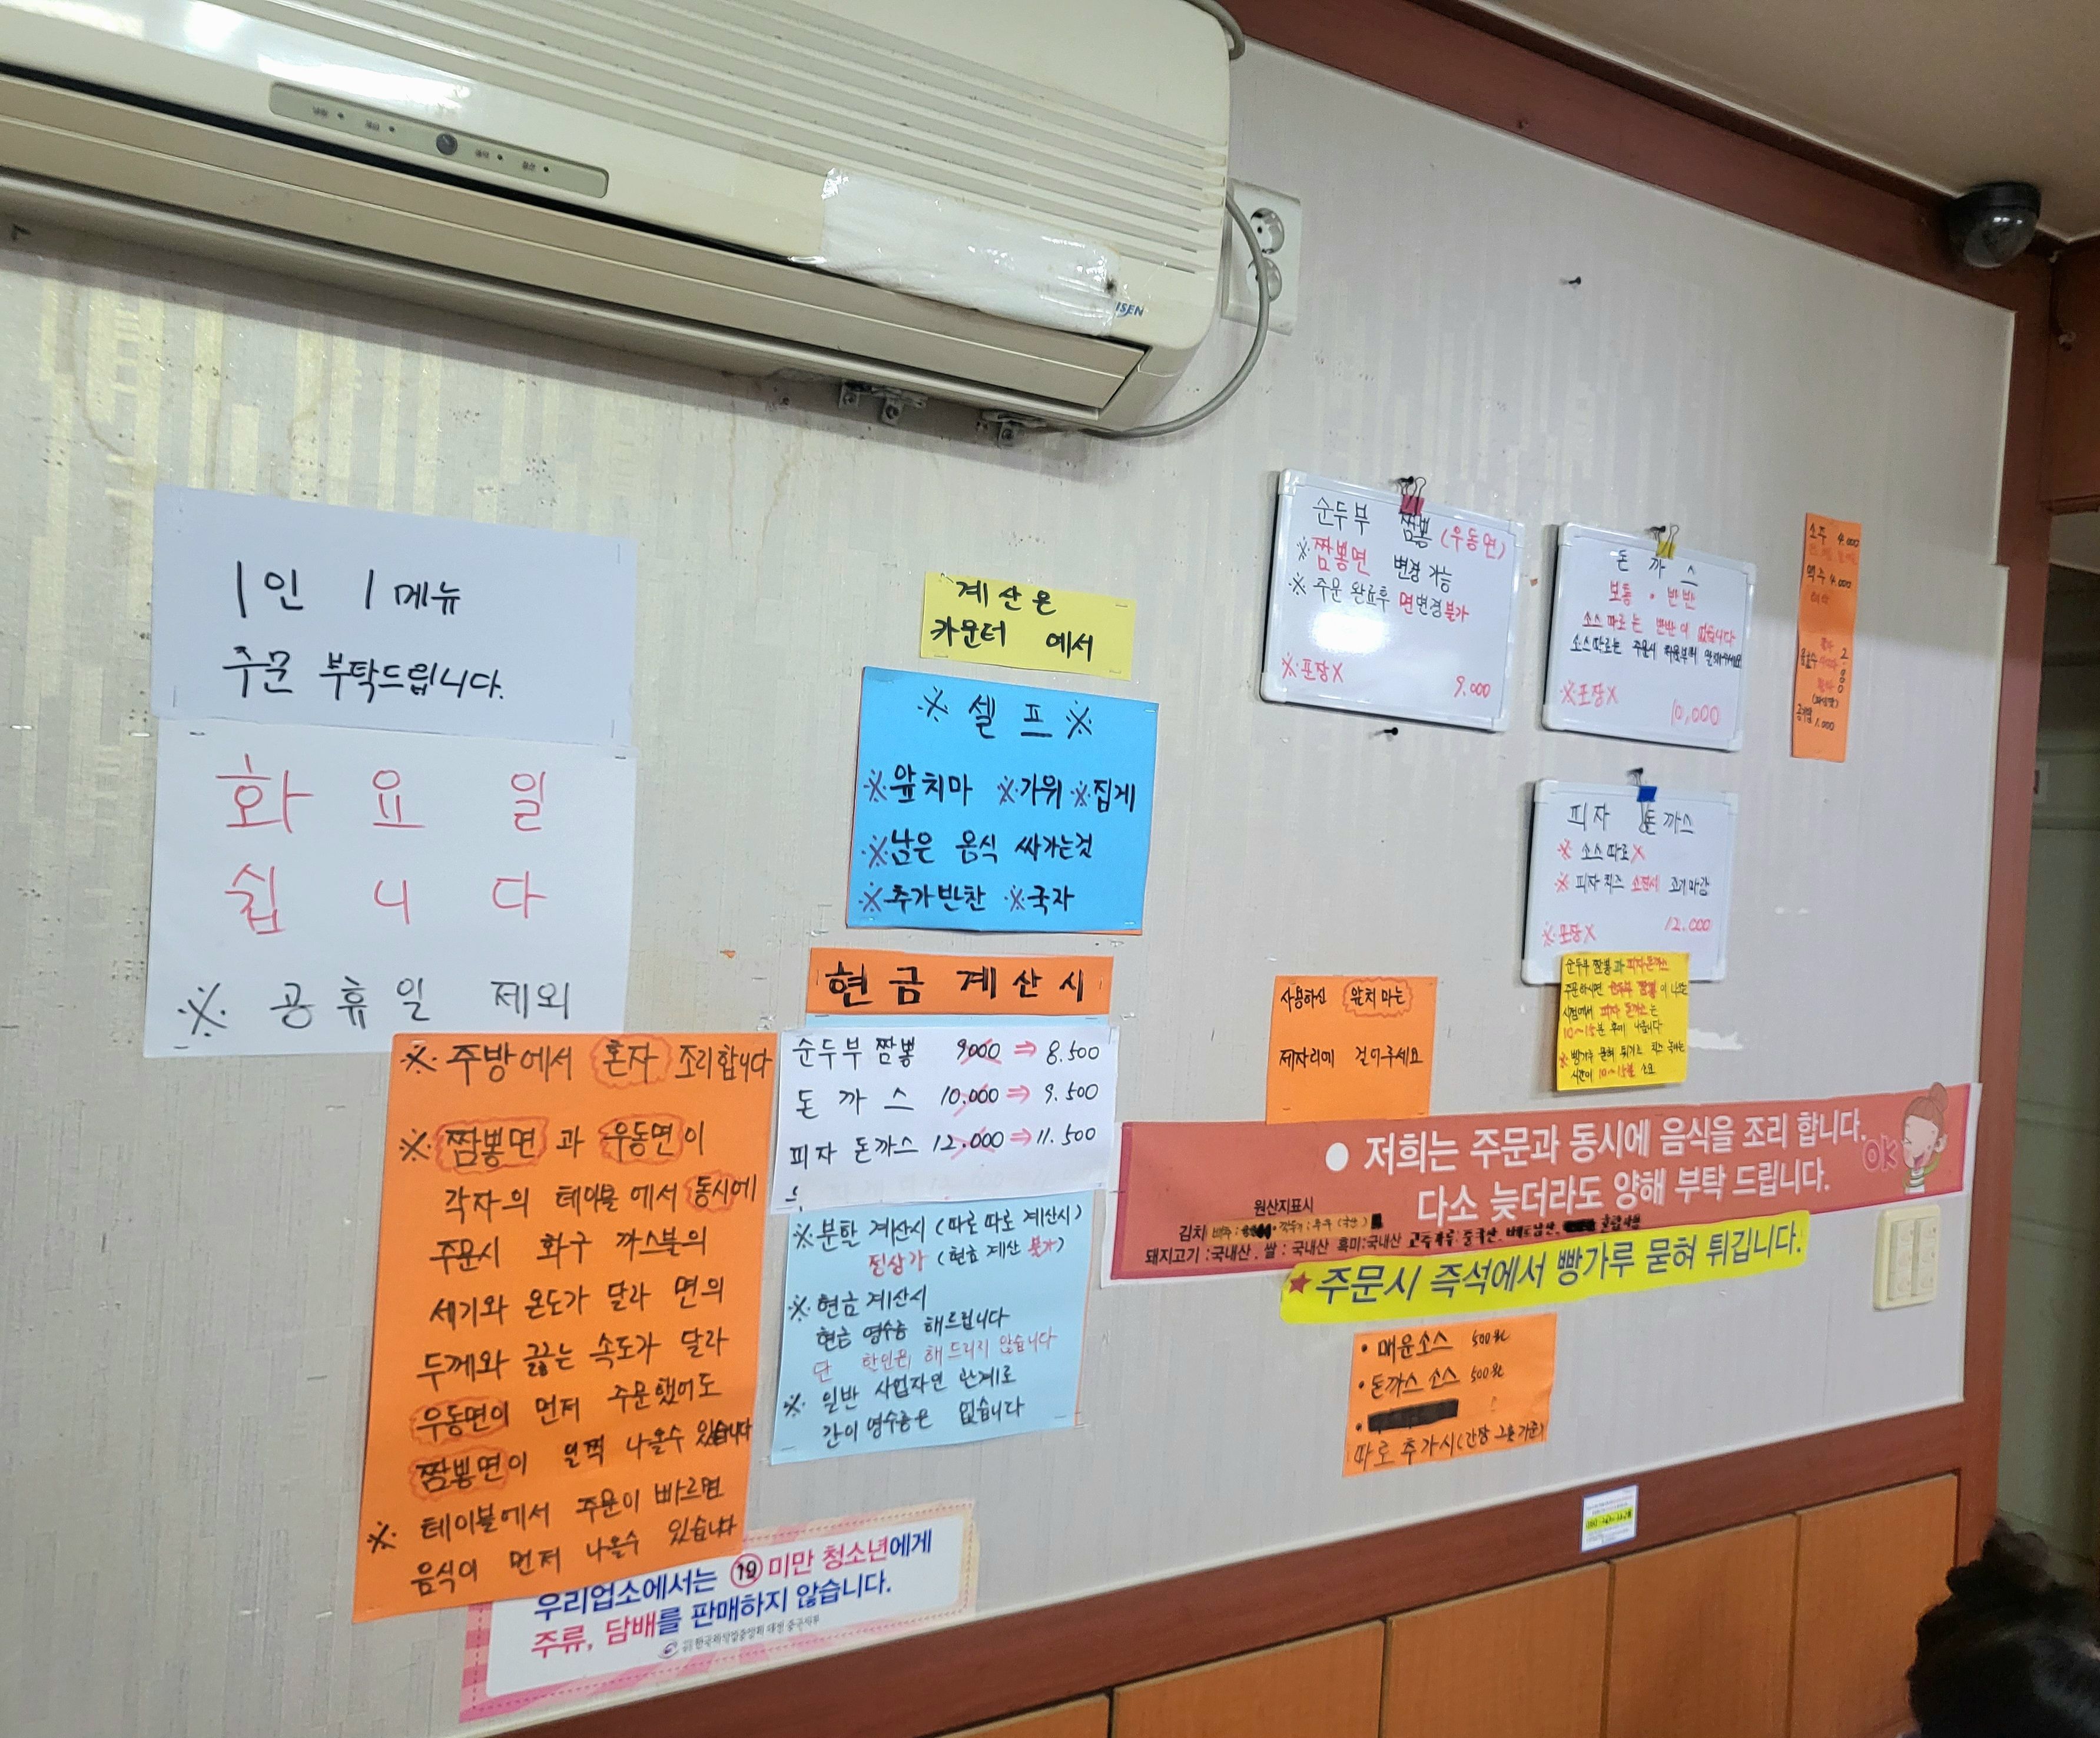 1인 1메뉴
주문 부탁드립니다.
화 요 일
쉽 니 다
※ 공휴일 제외
※ 주방에서 혼자 조리합니다
※ 짬뽕면과 우동면이
각자의 테이블에서 동시에
주문시 화구 까스불의
세기와 온도가 달라 면의
두께와 끓는 속도가 달라
우동면이 먼저 주문했어도
짬뽕면이 일찍 나올수 있습니다
※ 테이블에서 주문이 빠르면
음식이 먼저 나올수 있습니다
우리업소에서는 19 미만 청소년에게
주류, 담배를 판매하지 않습니다.
계산은
카운터 에서
※ 셀 프 ※
※앞치마 ※가위 ※집게
※남은 음식 싸가는것
※추가반찬 ※국자
현 금 계 산 시
순두부 짬뽕 9000 ⇒ 8.500
돈 까 스 10,000 ⇒ 9.500
피자 돈까스 12.000 ⇒ 11.500
※분할 계산시 (따로따로 계산시)
정상가 (현금 계산 불가)
※ 현금 계산시
현금 영수증 해드립니다
단 할인은 해 드리지 않습니다
※ 일반 사업자인 관계로
간이영수증은 없습니다
순두부 짬뽕 (우동면)
※짬뽕면 변경 가능
※ 주문 완료후 면변경불가
※포장X 9.000
돈 까 스
보통 • 반반
소스따로는 반반이 없습니다
소스따로는 주문시 처음부터 말해주세요
※포장X 10,000
소주 4.000
맥주 4.000
음료수
공기밥 1.000
피자 돈까스
※ 소스따로X
※ 피자치즈 소진시 조기마감
※포장X 12.000
순두부 짬뽕과 피자돈까스
주문하시면 순두부 짬뽕이 나온
시점에서 피자 돈까스는
10~15분 후에 나옵니다
시간이 10~15분 소요
사용하신 앞치마는
제자리에 걸어주세요
● 저희는 주문과 동시에 음식을 조리 합니다.
다소 늦더라도 양해 부탁 드립니다.
OK
원산지표시
김치
돼지고기 : 국내산 . 쌀 : 국내산 흑미:국내산
★주문시 즉석에서 빵가루 묻혀 튀깁니다.
• 매운소스 500원
• 돈까스 소스 500원
따로 추가시(간장 그릇 기준)